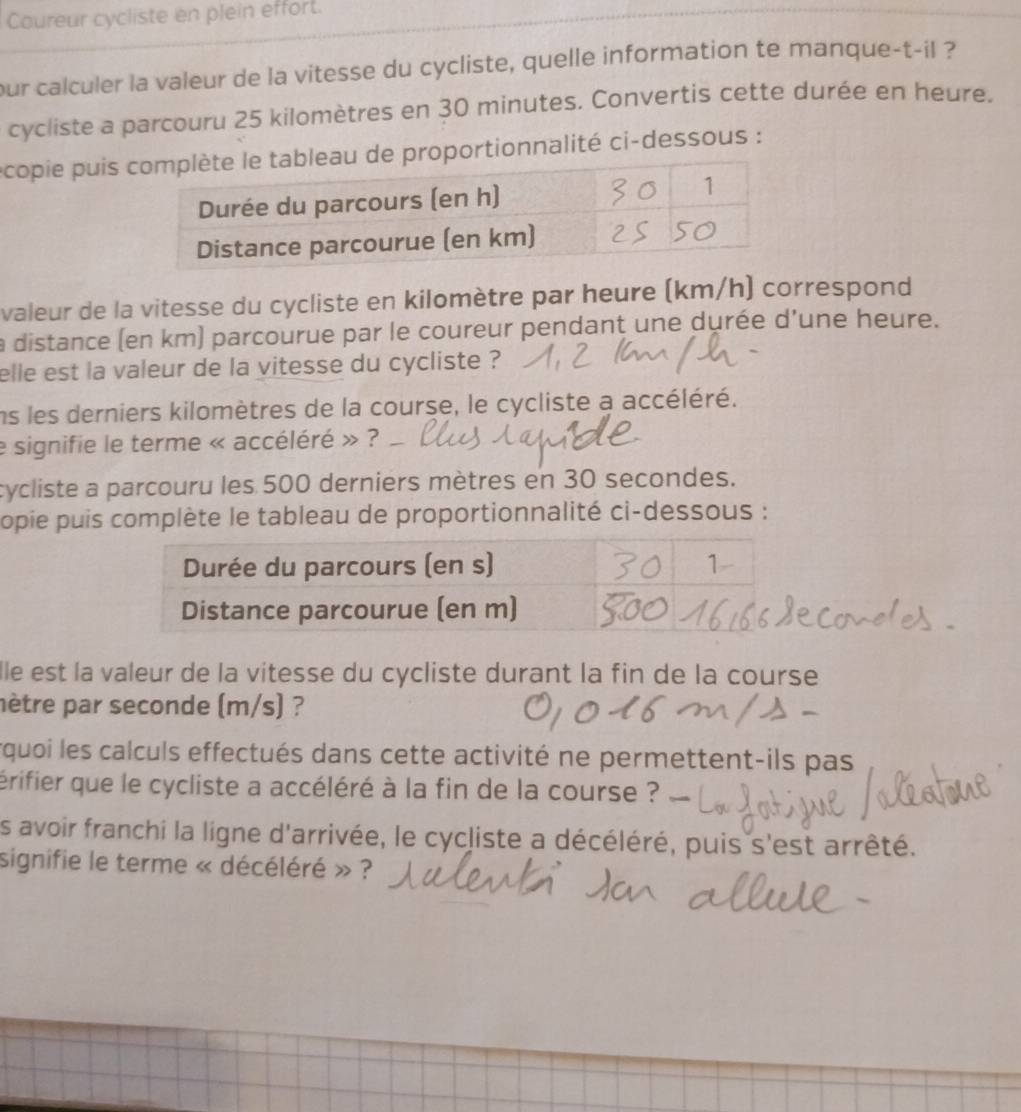 Coureur cycliste en plein effort.
our calculer la valeur de la vitesse du cycliste, quelle information te manque-t-il ?
cycliste a parcouru 25 kilomètres en 30 minutes. Convertis cette durée en heure.
copie puis complète le tableau de proportionnalité ci-dessous :
Durée du parcours (en h) 30 1
Distance parcourue (en km) 25 50
valeur de la vitesse du cycliste en kilomètre par heure (km/h) correspond
a distance (en km) parcourue par le coureur pendant une durée d'une heure.
elle est la valeur de la vitesse du cycliste ? 1,2 km/h -
ns les derniers kilomètres de la course, le cycliste a accéléré.
e signifie le terme « accéléré » ? - Plus rapide.
cycliste a parcouru les 500 derniers mètres en 30 secondes.
opie puis complète le tableau de proportionnalité ci-dessous :
Durée du parcours (en s) 30 1
Distance parcourue (en m) 500 16,66 secondes.
lle est la valeur de la vitesse du cycliste durant la fin de la course
mètre par seconde (m/s) ? 0,016 m/s -
rquoi les calculs effectués dans cette activité ne permettent-ils pas
érifier que le cycliste a accéléré à la fin de la course ? - La fatigue /
s avoir franchi la ligne d'arrivée, le cycliste a décéléré, puis s'est arrêté.
signifie le terme « décéléré » ? ralenti son allure -